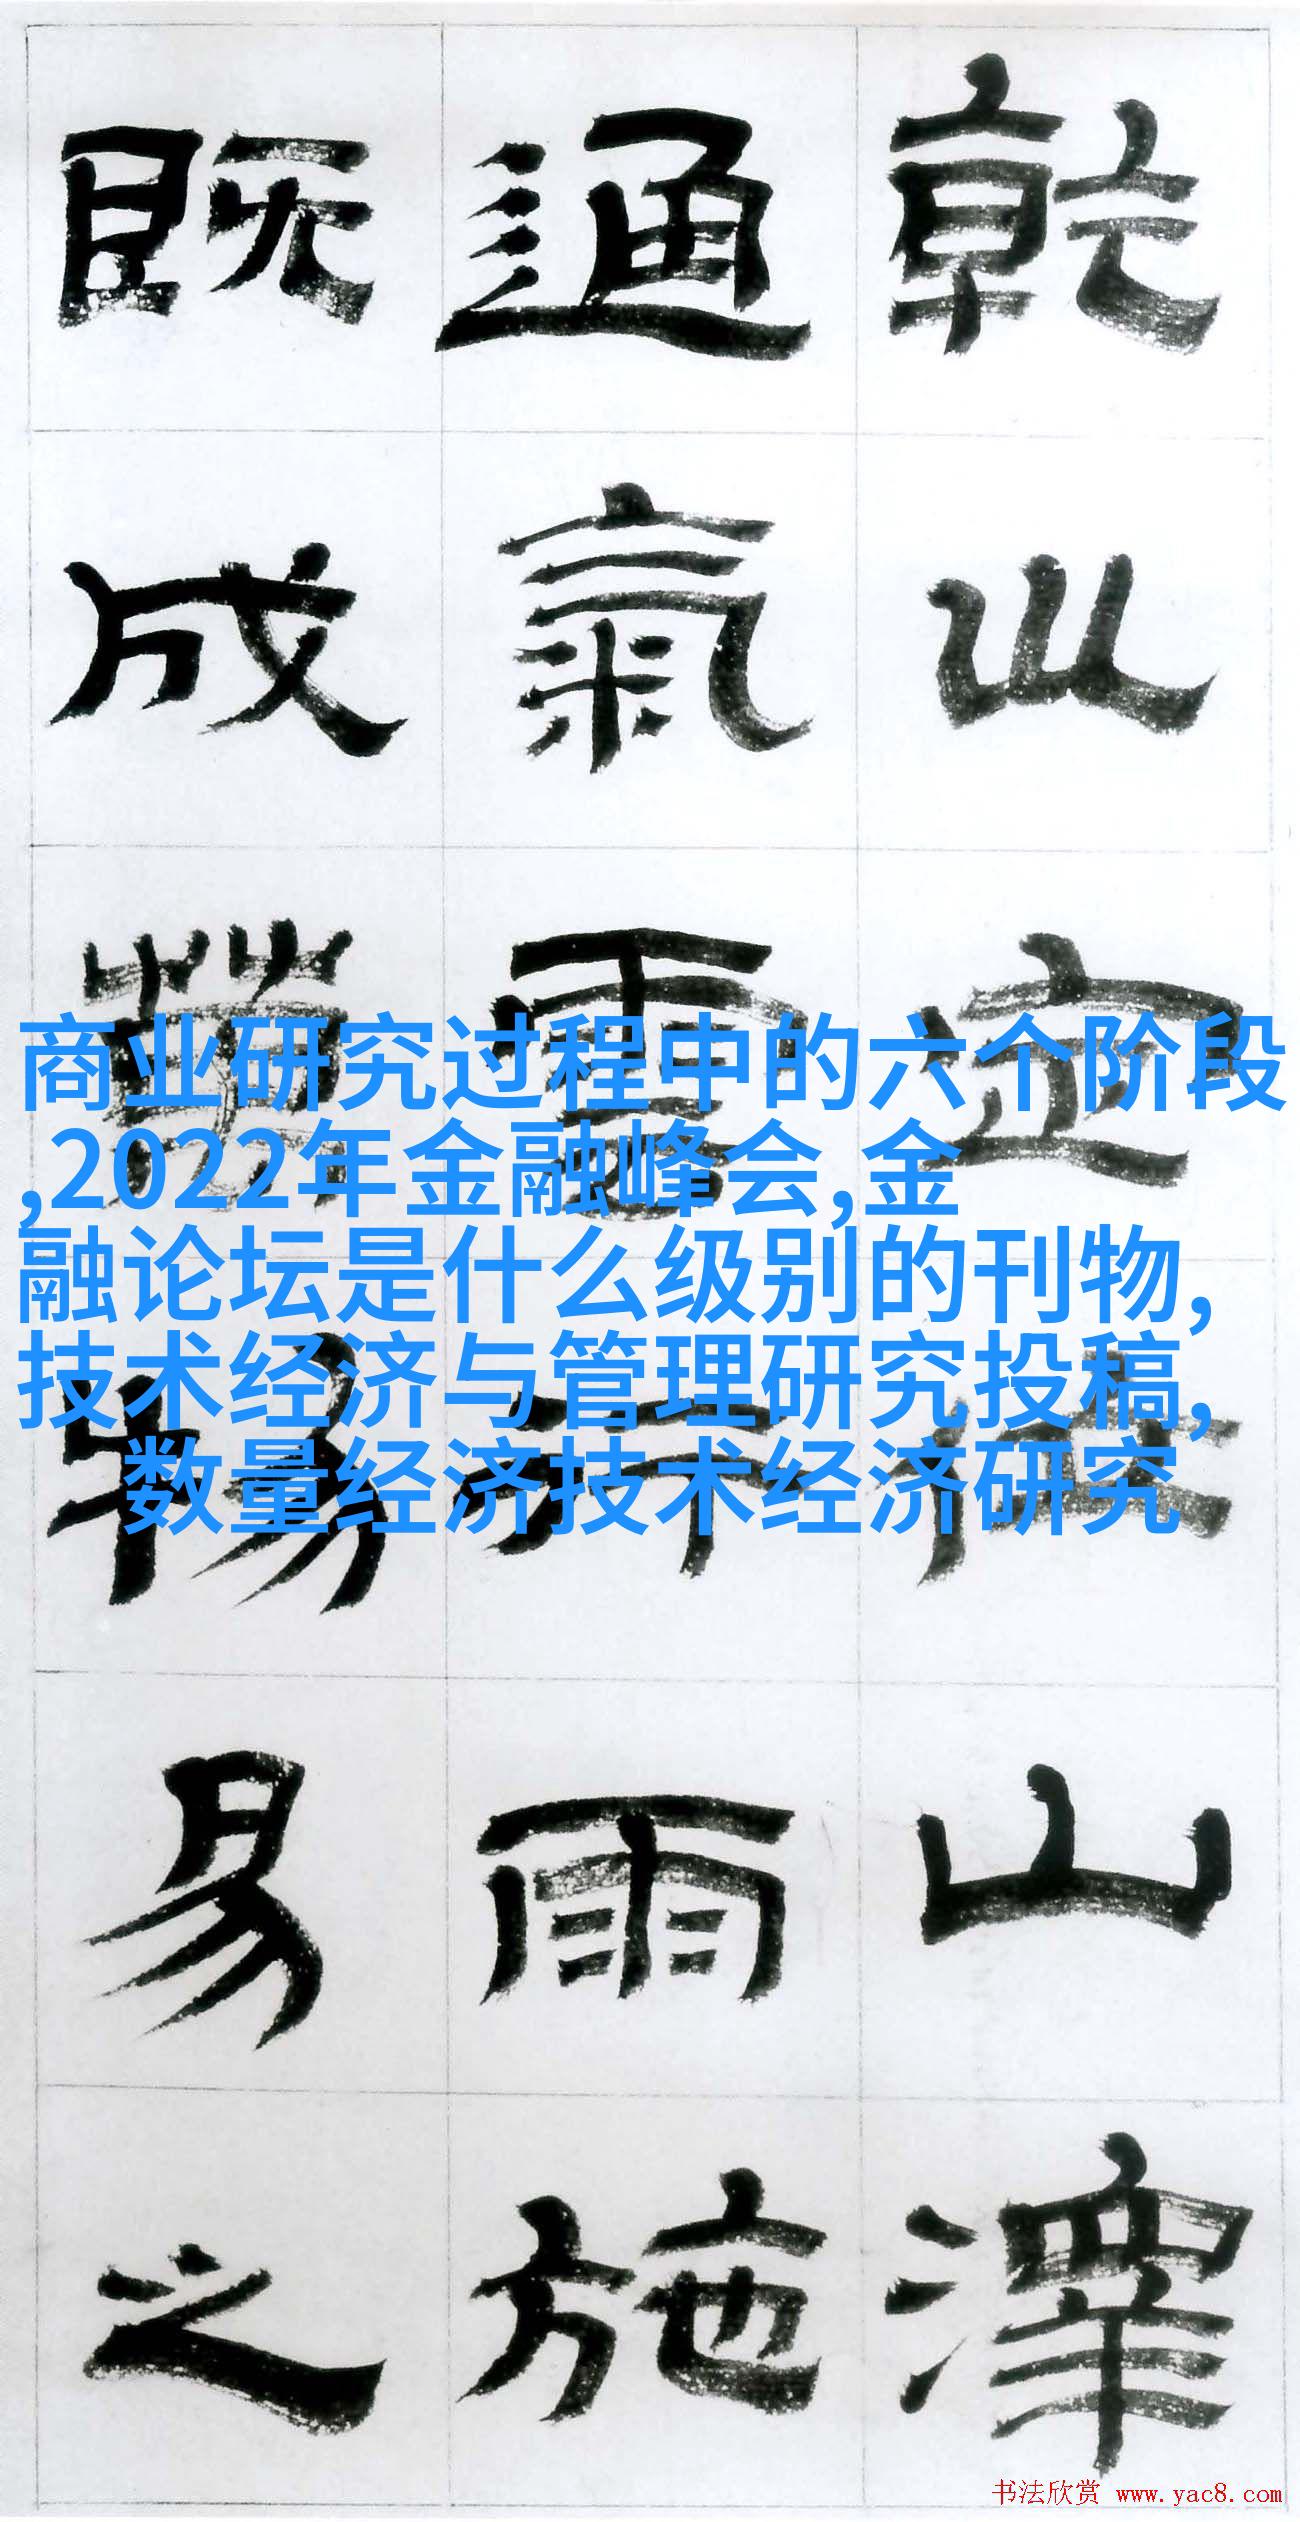 乾巛定位山澤
通氣雲行雨施
既成萬物易之
商业研究过程中的六个阶段
,2022年金融峰会,金
融论坛是什么级别的刊物,
技术经济与管理研究投稿,
数量经济技术经济研究
书法欣赏 www.yac8.com